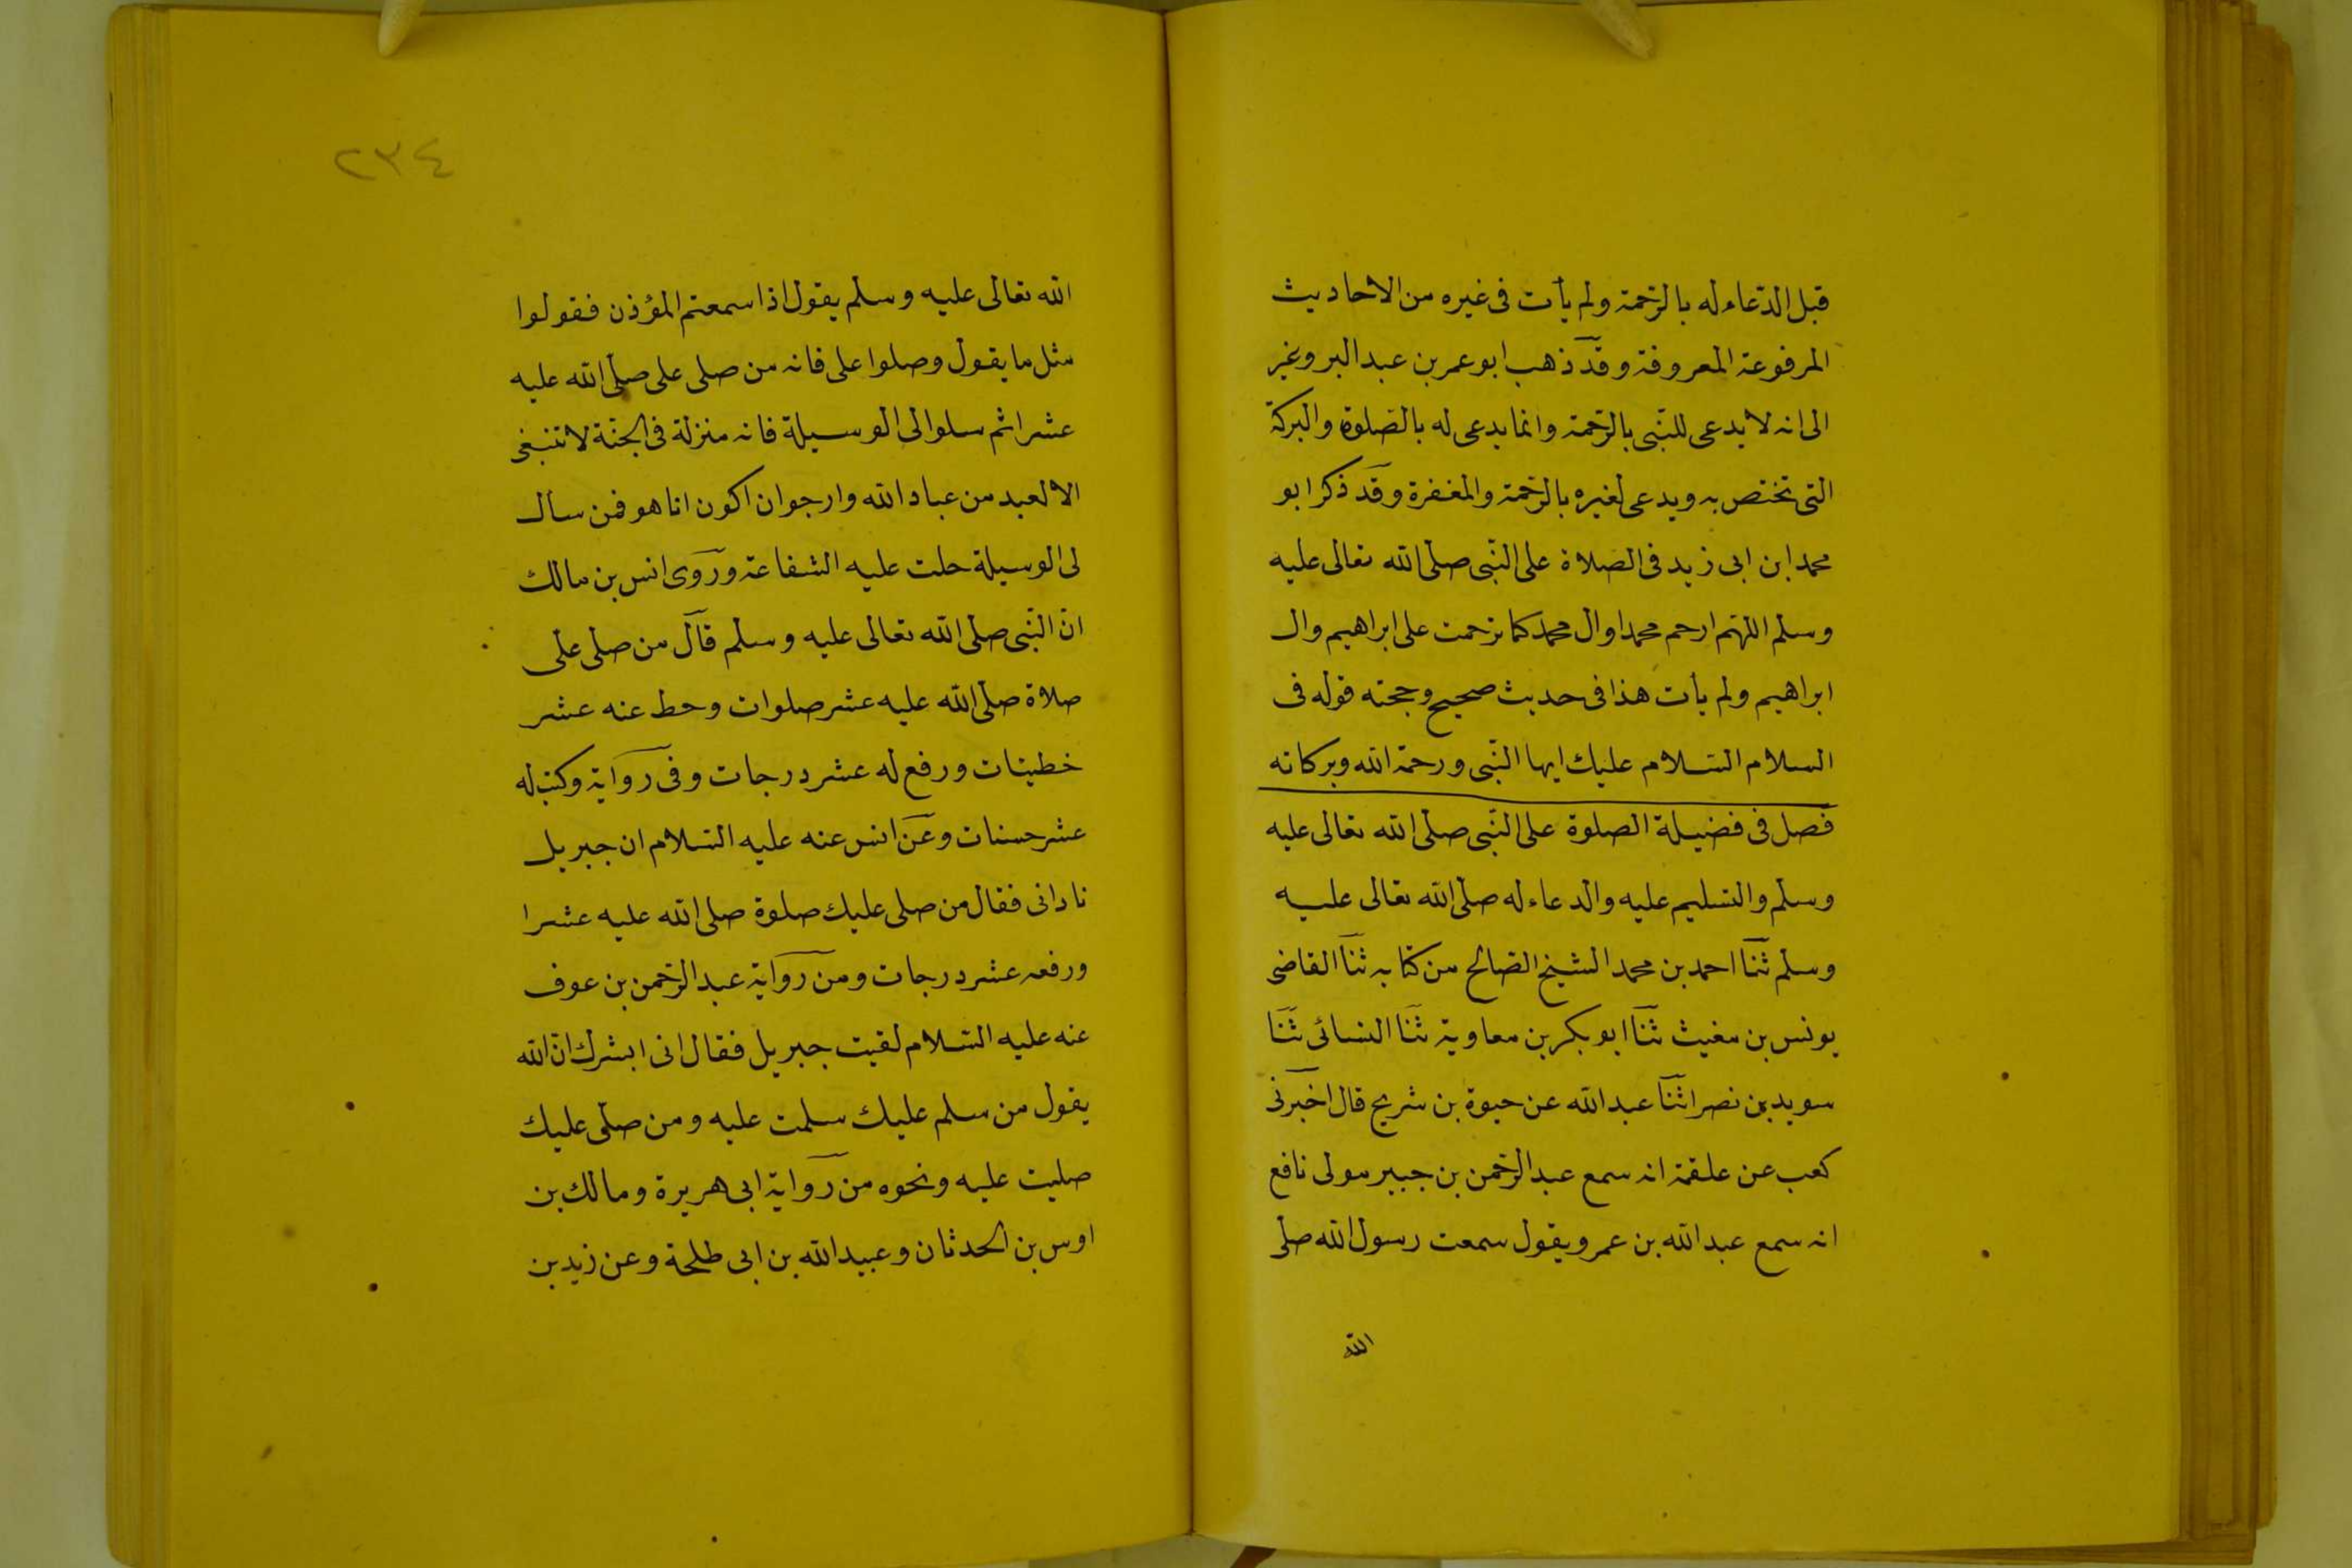 قبل الدّعاء له بالرّحمة ولم يأت فى غيره من الاحاديث
المرفوعة المعروفة وقد ذهب ابو عمر بن عبد البر وغير
الى انه لا يدعى للنّبى بالرّحمة وانما يدعى له بالصّلوة والبركة
التى تختص به ويدعى لغيره بالرّحمة والمغفرة وقد ذكر ابو
محمد ابن ابى زيد فى الصّلاة على النّبى صلّى الله تعالى عليه
وسلم اللهّم ارحم محمدا وال محمد كما ترحمت على ابراهيم وال
ابراهيم ولم يأت هذا فى حديث صحيح وحجته قوله فى
السلام السّلام عليك ايها النّبى ورحمة الله وبركاته
فصل فى فضيلة الصلوة على النّبى صلّى الله تعالى عليه
وسلم والتسليم عليه والدعاء له صلّى الله تعالى عليه
وسلم ثنا احمد بن محمد الشيخ الصّالح من كتابه ثنا القاضى
يونس بن مغيث ثنا ابو بكر بن معاوية ثنا النسائى ثنا
سويد بن نصر اثنا عبد الله عن حيوة بن شريح قال اخبرنى
كعب عن علقمة انه سمع عبد الرّحمن بن جبير مولى نافع
انه سمع عبد الله بن عمرو يقول سمعت رسول الله صلّى
الله
٢٣٤
الله تعالى عليه وسلم يقول اذا سمعتم المؤذن فقولوا
مثل ما يقول وصلوا على فانه من صلى على صلّى الله عليه
عشرا ثم سلوا لى الوسيلة فانه منزلة فى الجنّة لا تنبغى
الا لعبد من عباد الله وارجوان اكون انا هو فمن سأل
لى الوسيلة حلت عليه الشفاعة وروى انس بن مالك
انّ النّبى صلّى الله تعالى عليه وسلم قال من صلّى علّى
صلاة صلّى الله عليه عشر صلوات وحط عنه عشر
خطيئات ورفع له عشر درجات وفى رواية وكتب له
عشر حسنات وعن انس عنه عليه السّلام ان جبريل
نادانى فقال من صلى عليك صلوة صلى الله عليه عشرا
ورفعه عشر درجات ومن رواية عبد الرّحمن بن عوف
عنه عليه السّلام لقيت جبريل فقال انى ابشرك انّ الله
يقول من سلم عليك سلمت عليه ومن صلّى عليك
صليت عليه ونحوه من رواية ابى هريرة ومالك بن
اوس بن الحدثان وعبيد الله بن ابى طلحة وعن زيد بن